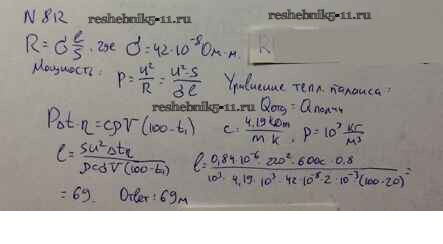 N 812
reshebnik5-11.ru reshebnik5-11.ru
R = σ l/S. где σ = 42·10⁻⁸ Ом·м. R
Мощность: P = u²/R = u²·S/σl
Уравнение тепл. баланса:
reshebnik5-11.ru Qотд = Qполуч
PΔt·η = cρV(100-t₁) c = 4,19кДж/m к, ρ = 10³ кг/м³
l = Su²Δtη/ρcσV(100-t₁) l = 0,84·10⁻⁶·220²·600·0,8/10³·4,19·10³·42·10⁻⁸·2·10⁻³(100-20) =
= 69. Ответ: 69м
reshebnik5-11.ru reshebnik5-11.ru